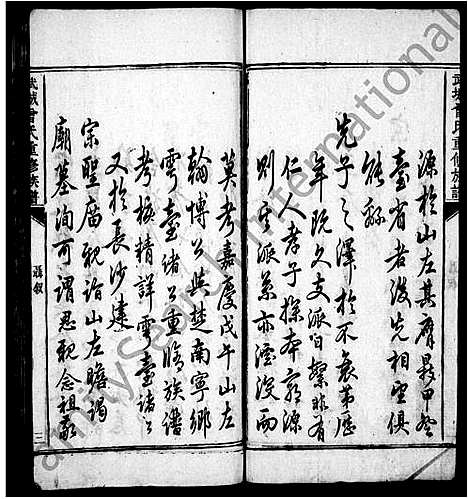 武城曾氏重修族譜
源於山左其膺晨田登
臺省者後先相望俱
能繇
先子之澤於不衰第歷
年既久支派日繁非有
仁人孝子探本窮源
則系派業亦湮沒而
莫考嘉慶戊午山左
翰博公與楚南寧鄉
雩臺諸公重脩族譜
考核精詳雩臺諸公
又於長沙建
宗聖廟親詣山左瞻謁
廟墓洵可謂思親念祖敦
武城曾氏重修族譜
聶叙
三
Search International